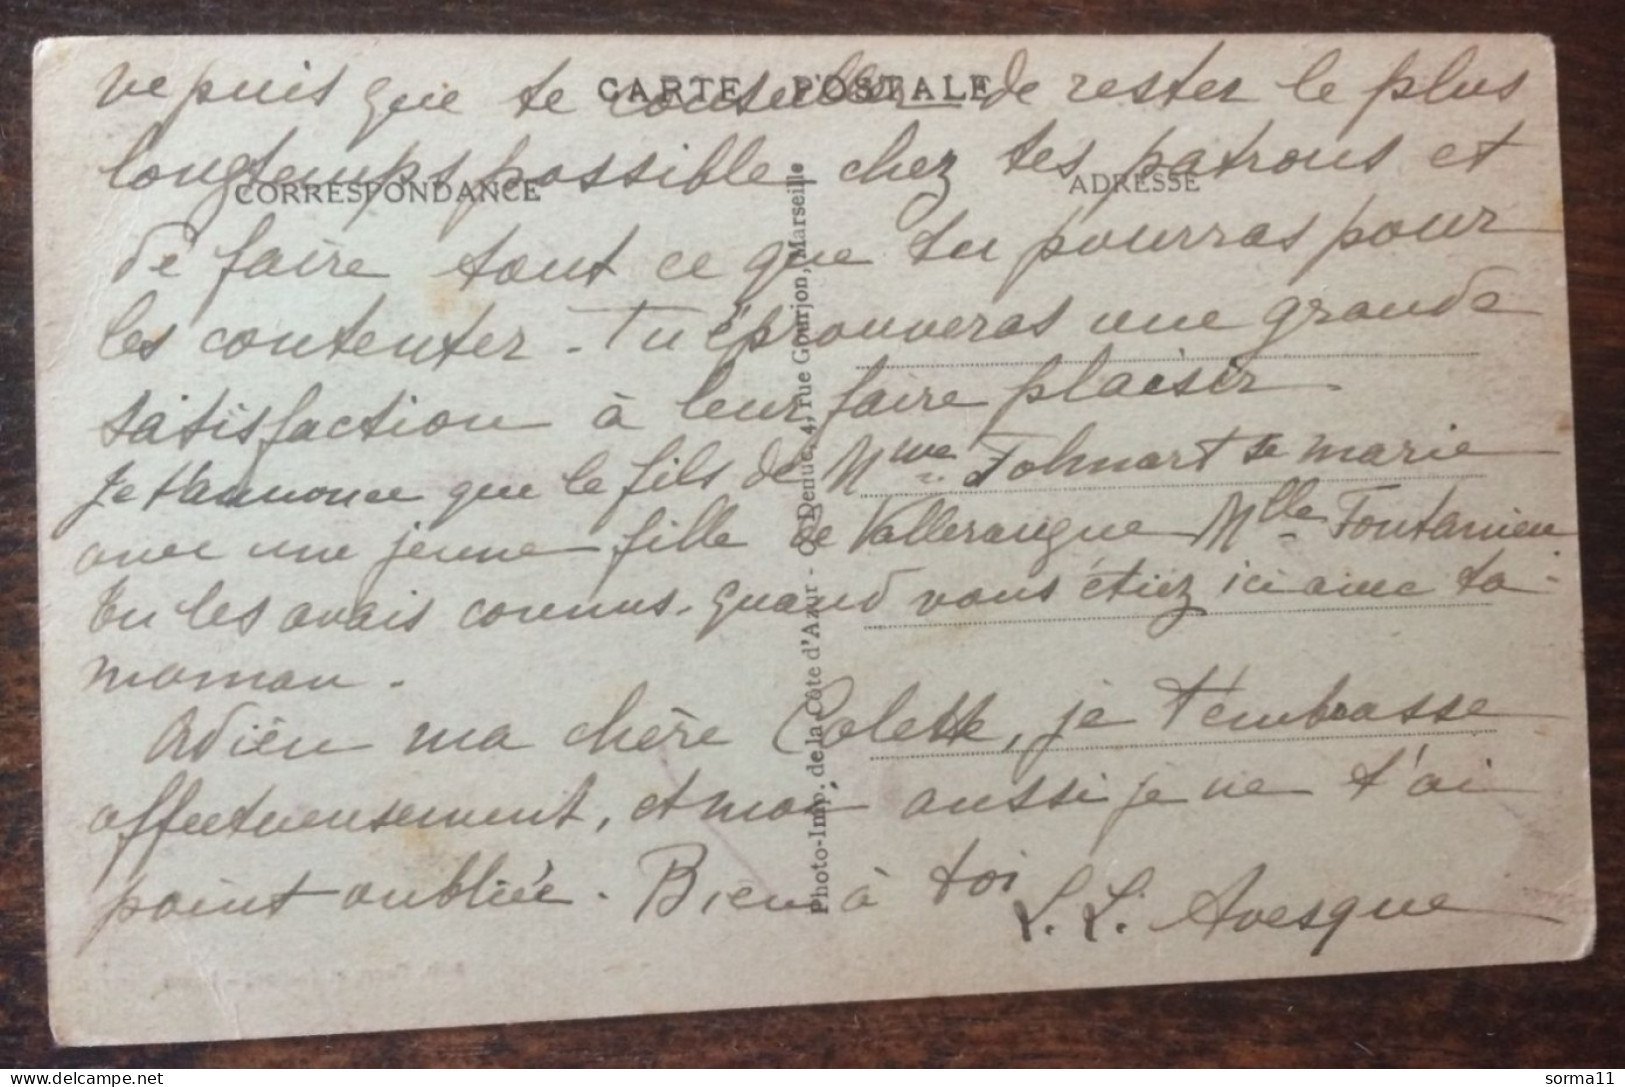 CARTE POSTALE
CORRESPONDANCE
ADRESSE
ve puis que te conseiller de rester le plus
longtemps possible chez tes patrons et
de faire tout ce que tu pourras pour
les contenter. Tu éprouveras une grande
satisfaction à leur faire plaisir.
Je t'annonce que le fils de Mme se marie
avec une jeune fille de Valleraugue Mlle Fontanieu
tu les avais connus quand vous étiez ici avec ta
maman.
Adieu ma chère Colette, je t'embrasse
affectueusement, et moi aussi je ne t'ai
point oubliée. Bien à toi
L. L. Avesque
Photo-Imp. de la Côte d'Azur - Denue, 4, rue Gourjon, Marseille
sorma11